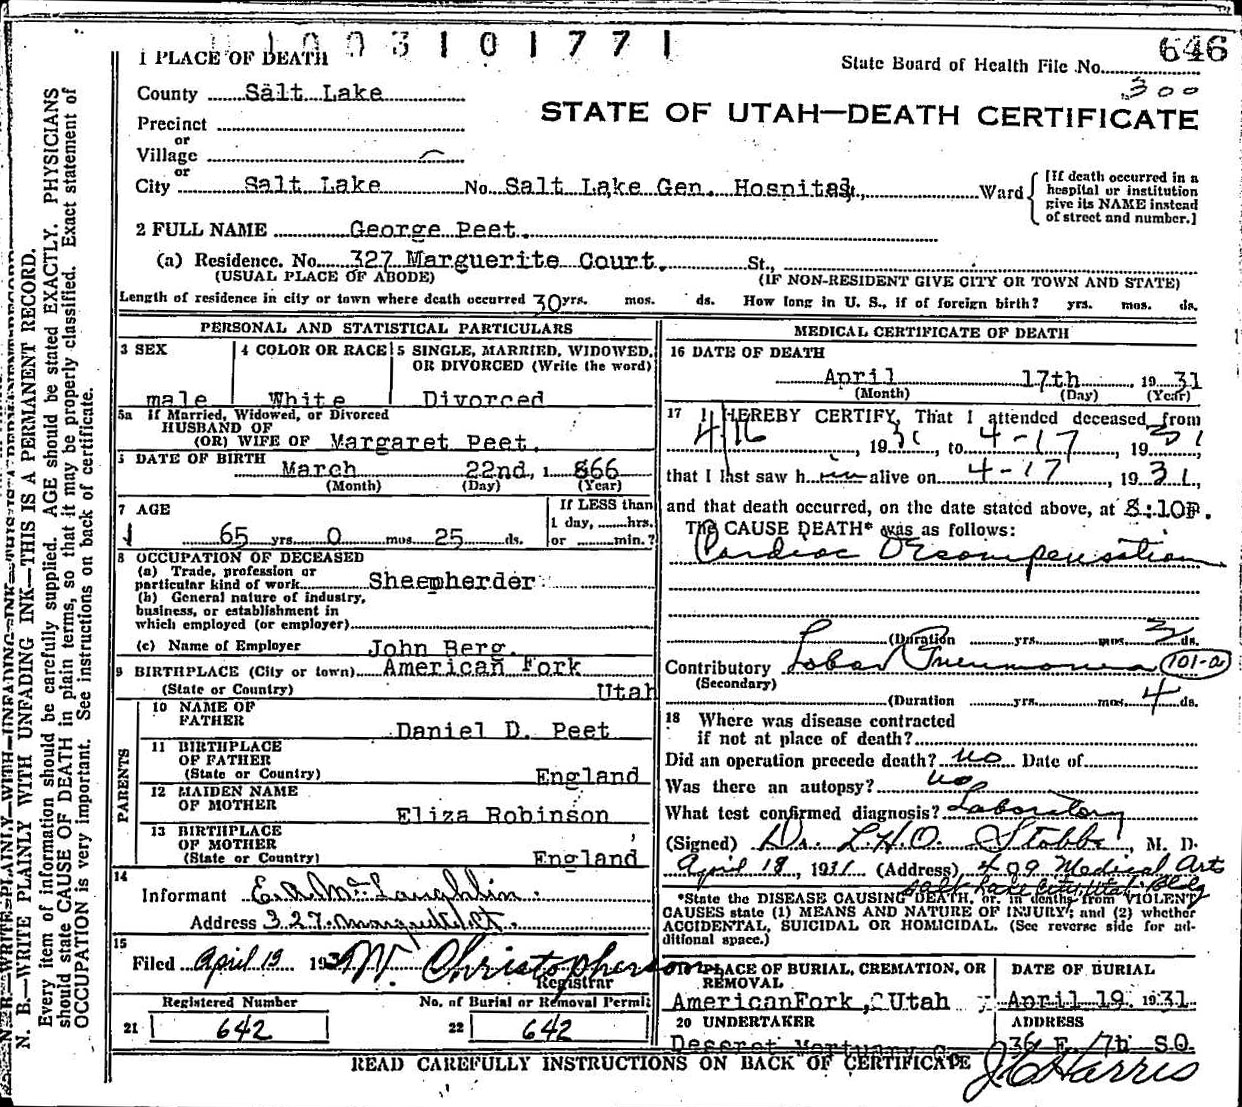 1003101771
646
1 PLACE OF DEATH
State Board of Health File No.
300
County Salt Lake
STATE OF UTAH—DEATH CERTIFICATE
Precinct
or
Village
or
City Salt Lake No. Salt Lake Gen. Hospital, Ward
[If death occurred in a
hospital or institution
give its NAME instead
of street and number.]
2 FULL NAME George Peet.
(a) Residence. No. 327 Marguerite Court. St.,
(USUAL PLACE OF ABODE) (IF NON-RESIDENT GIVE CITY OR TOWN AND STATE)
Length of residence in city or town where death occurred 30 yrs. mos. ds. How long in U. S., if of foreign birth? yrs. mos. ds.
PERSONAL AND STATISTICAL PARTICULARS
3 SEX
male
4 COLOR OR RACE
White
5 SINGLE, MARRIED, WIDOWED,
OR DIVORCED (Write the word)
Divorced
5a If Married, Widowed, or Divorced
HUSBAND OF
(OR) WIFE OF Margaret Peet.
DATE OF BIRTH
March 22nd, 1 866
(Month) (Day) (Year)
7 AGE
65 yrs. 0 mos. 25 ds.
If LESS than
1 day, hrs.
or min.?
8 OCCUPATION OF DECEASED
(a) Trade, profession or
particular kind of work Sheepherder
(b) General nature of industry,
business, or establishment in
which employed (or employer)
(c) Name of Employer John Berg.
9 BIRTHPLACE (City or town) American Fork
(State or Country) Utah
PARENTS
10 NAME OF
FATHER
Daniel D. Peet
11 BIRTHPLACE
OF FATHER
(State or Country) England
12 MAIDEN NAME
OF MOTHER
Eliza Robinson
13 BIRTHPLACE
OF MOTHER
(State or Country) England
14
Informant E. A. McLaughlin.
Address 327 Marguerite Ct.
15
Filed April 19 193 W. Christopherson
Registrar
Registered Number
21 642
No. of Burial or Removal Permit
22 642
MEDICAL CERTIFICATE OF DEATH
16 DATE OF DEATH
April 17th 1931
(Month) (Day) (Year)
17 I HEREBY CERTIFY, That I attended deceased from
4/16, 1931, to 4-17, 1931,
that I last saw him alive on 4-17, 1931,
and that death occurred, on the date stated above, at 8:10P.
The CAUSE DEATH* was as follows:
Cardiac Decompensation
(Duration yrs. mos. 2 ds.
Contributory Lobar Pneumonia 101-a
(Secondary)
(Duration yrs. mos. 4 ds.
18 Where was disease contracted
if not at place of death?
Did an operation precede death? no Date of
Was there an autopsy? no
What test confirmed diagnosis? Laboratory
(Signed) Dr. L.H.O. Stobbe, M. D.
April 18, 1931 (Address) 409 Medical Arts
Salt Lake City, Utah Bldg
*State the DISEASE CAUSING DEATH, or, in deaths from VIOLENT
CAUSES state (1) MEANS AND NATURE OF INJURY; and (2) whether
ACCIDENTAL, SUICIDAL OR HOMICIDAL. (See reverse side for ad-
ditional space.)
19 PLACE OF BURIAL, CREMATION, OR
REMOVAL
American Fork, Utah
DATE OF BURIAL
April 19 1931
20 UNDERTAKER
Deseret Mortuary C
ADDRESS
36 E. 7th SO.
J C Harris
READ CAREFULLY INSTRUCTIONS ON BACK OF CERTIFICATE
N. B.—WRITE PLAINLY WITH UNFADING INK—THIS IS A PERMANENT RECORD.
Every item of information should be carefully supplied. AGE should be stated EXACTLY. PHYSICIANS
should state CAUSE OF DEATH in plain terms, so that it may be properly classified. Exact statement of
OCCUPATION is very important. See instructions on back of certificate.